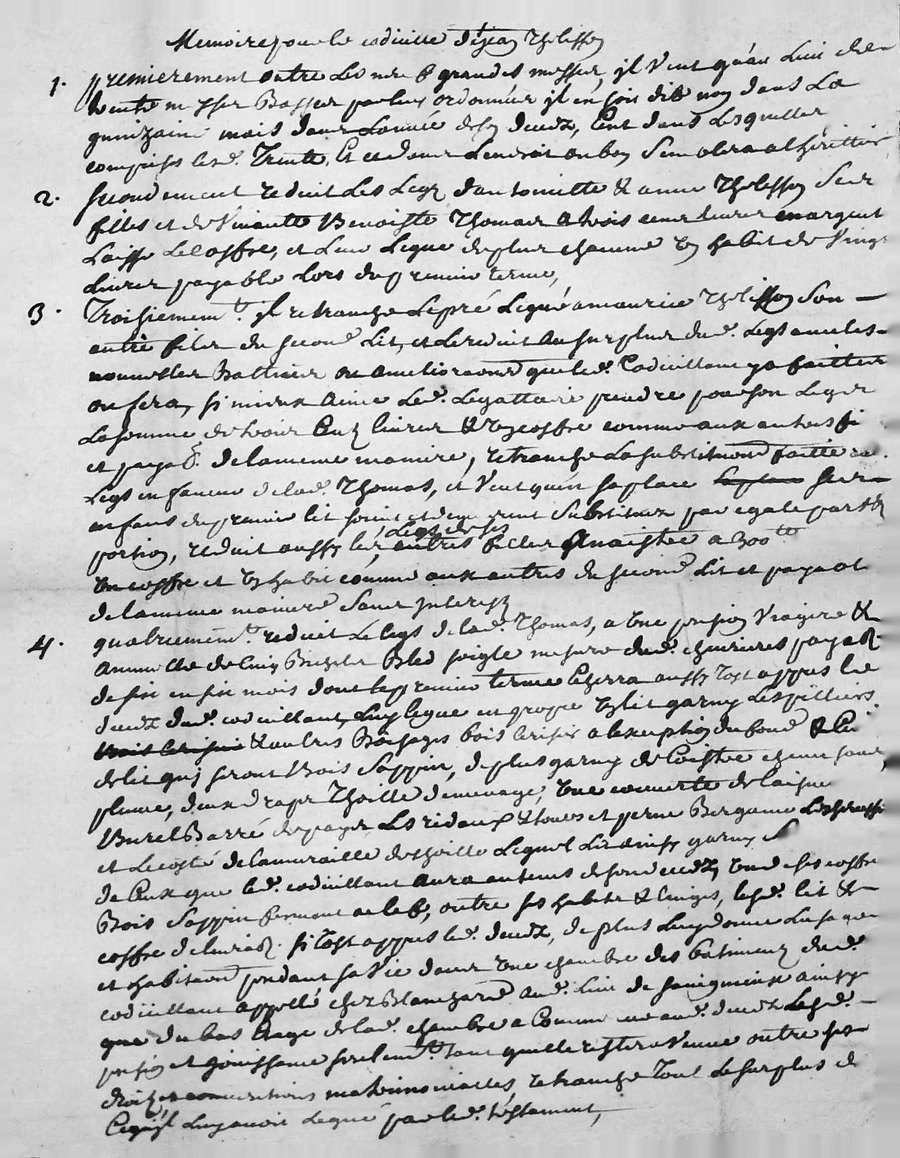 Memoire pour le codicille de jean Thelisson
1. premierement outre les neuf grandes messes, il veut qu'au lieu de
trente messes Basses par luy ordonnées il en soit dit non dans la
quinzaine mais dans l'année de son deceds, Cent dans lesquelles
comprises lesd. Trente, et dans l'endroit ou bon semblera a l'heritier
2. secondement reduit les legs d'antoinette & anne Thelisson ses
filles et de Benoiste Thomas a trois cens livres en argent
laisse le coffre, et leur legue de plus chacune un habit de vingt
livres payable lors du premier terme,
3. Troisiement. il retranche le pré legué a maurice Thelisson son
autre fils du second lit, et le reduit au surplus dud. legs avec les
nouvelles Battisses ou ameliorations que led. Codicillant ya faittes
ou fera, si mieux aime led. Legattaire prendre pour son legs
la somme de trois Cens livres & un coffre comme aux autres
et payab. de la meme maniere, retranche la substitution faitte
legs en faveur de lad. Thomas, et veut qu'en sa place ses
enfans du premier lit soient substitués par egale part &
portion, reduit aussy les legs de ses autres filles a 300 tt
un coffre et un habit comme aux autres du second lit et payab.
de la meme maniere sans interest
4. quatriement. reduit le legs de lad. Thomas, a une pension viagere &
annuelle de cinq Bichets Bled seigle mesure de payab.
de six en six mois dont le premier terme echerra aussy tost appres le
deceds dud. codicillant, luy legue en propre un lit garny les pilliers
& autres Boisages bois cerisier a l'exception du fond & ciel
de lit qui seront Bois sappin, de plus garny de Coistre
plume, deux draps Thoille de menage, une couverte de laine
Barré les rideaux & tours Bergame
et le costé de la muraille de thoille lequel lit ainsy garny
de Ceux que led. codicillant aura au tems de son deceds, un de ses coffres
Bois sappin fermant a clef, outre ses habits & linges, lesd. lit &
coffre delivrab. si tost appres led. deceds, de plus luy donne l'usage
et habitation pendant sa vie dans une chambre des batimens dud.
codicillant appellé chez Blanchard aud. lieu de ainsy
que du bas etage de lad. chambre a Commencer aud. deceds lesd.
pension et jouissance seulement. tant qu'elle restera veuve outre ses
droits, conventions matrimonialles, retranche tout le surplus de
Ce qu'il luy avoit legué par led. testament,